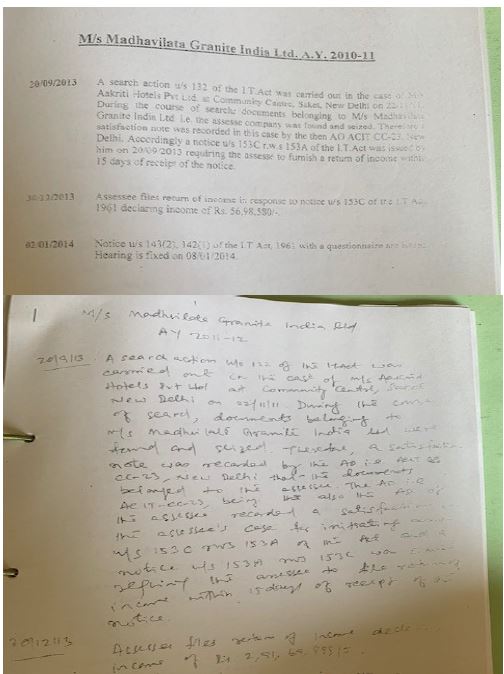 M/s Madhavilata Granite India Ltd. A.Y. 2010-11
20/09/2013 A search action u/s 132 of the I.T.Act was carried out in the case of M/s
Aakriti Hotels Pvt Ltd. at Community Centre, Saket, New Delhi on 22/11/11.
During the course of search, documents belonging to M/s Madhavilata
Granite India Ltd i.e. the assesse company was found and seized. Therefore a
satisfaction note was recorded in this case by the then AO ACIT CC-23, New
Delhi. Accordingly a notice u/s 153C r.w.s 153A of the I.T.Act was issued by
him on 20/09/2013 requiring the assesse to furnish a return of income within
15 days of receipt of the notice.
30/12/2013 Assessee files return of income in response to notice u/s 153C of the I.T Act,
1961 declaring income of Rs. 56,98,580/-.
02/01/2014 Notice u/s 143(2), 142(1) of the I.T Act, 1961 with a questionnaire are issued.
Hearing is fixed on 08/01/2014.
M/s Madhvilata Granite India Ltd
AY 2011-12
20/9/13 A search action u/s 132 of the IT Act was
carried out in the case of M/s Aakriti
Hotels Pvt Ltd at Community Centre, Saket
New Delhi on 22/11/11 During the course
of search, documents belonging to
M/s Madhvilata Granite India Ltd were
found and seized. Therefore, a satisfaction
note was recorded by the AO i.e ACIT
CC-23, New Delhi that the documents
belonged to the assessee. The AO i.e
ACIT-CC-23, being the also the AO of
the assessee recorded a satisfaction in
the assessee's case for initiating
u/s 153C rws 153A of the Act and a
notice u/s 153A rws 153C was
requiring the assessee to file return of
income within 15 days of receipt of
notice.
30/12/13 Assessee files return of income
income of Rs